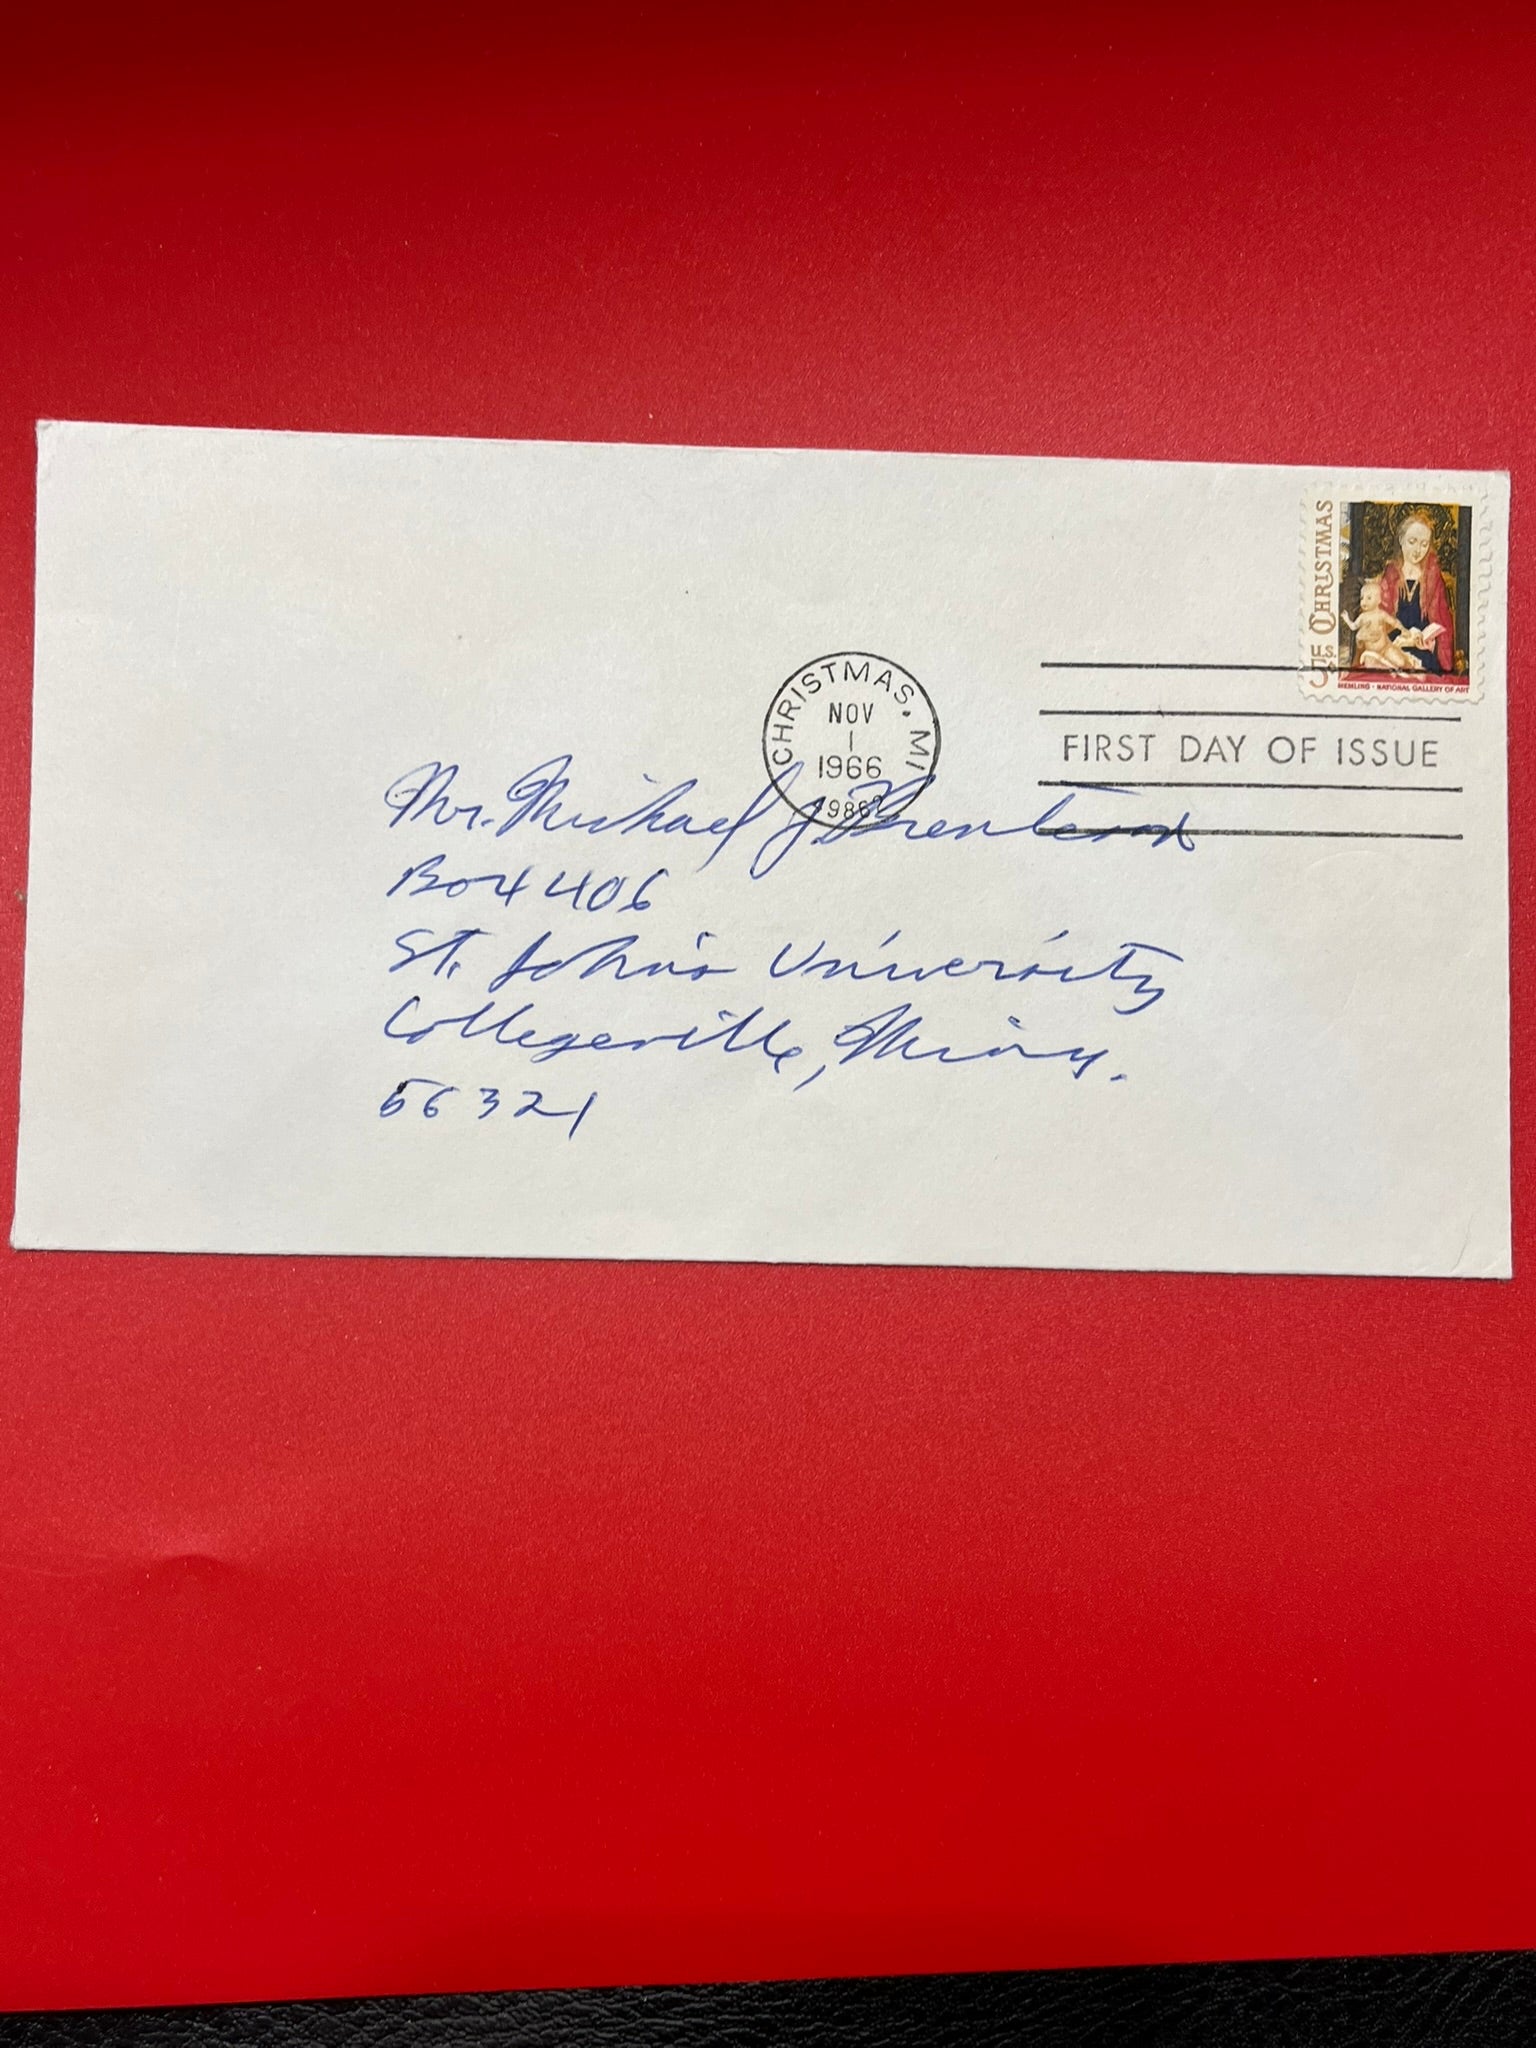 CHRISTMAS
5¢ U.S.
MEMLING · NATIONAL GALLERY OF ART
CHRISTMAS, MI
NOV
1
1966
FIRST DAY OF ISSUE
Mr. Michael J.
Box 406
St. John's University
Collegeville, Minn.
56321